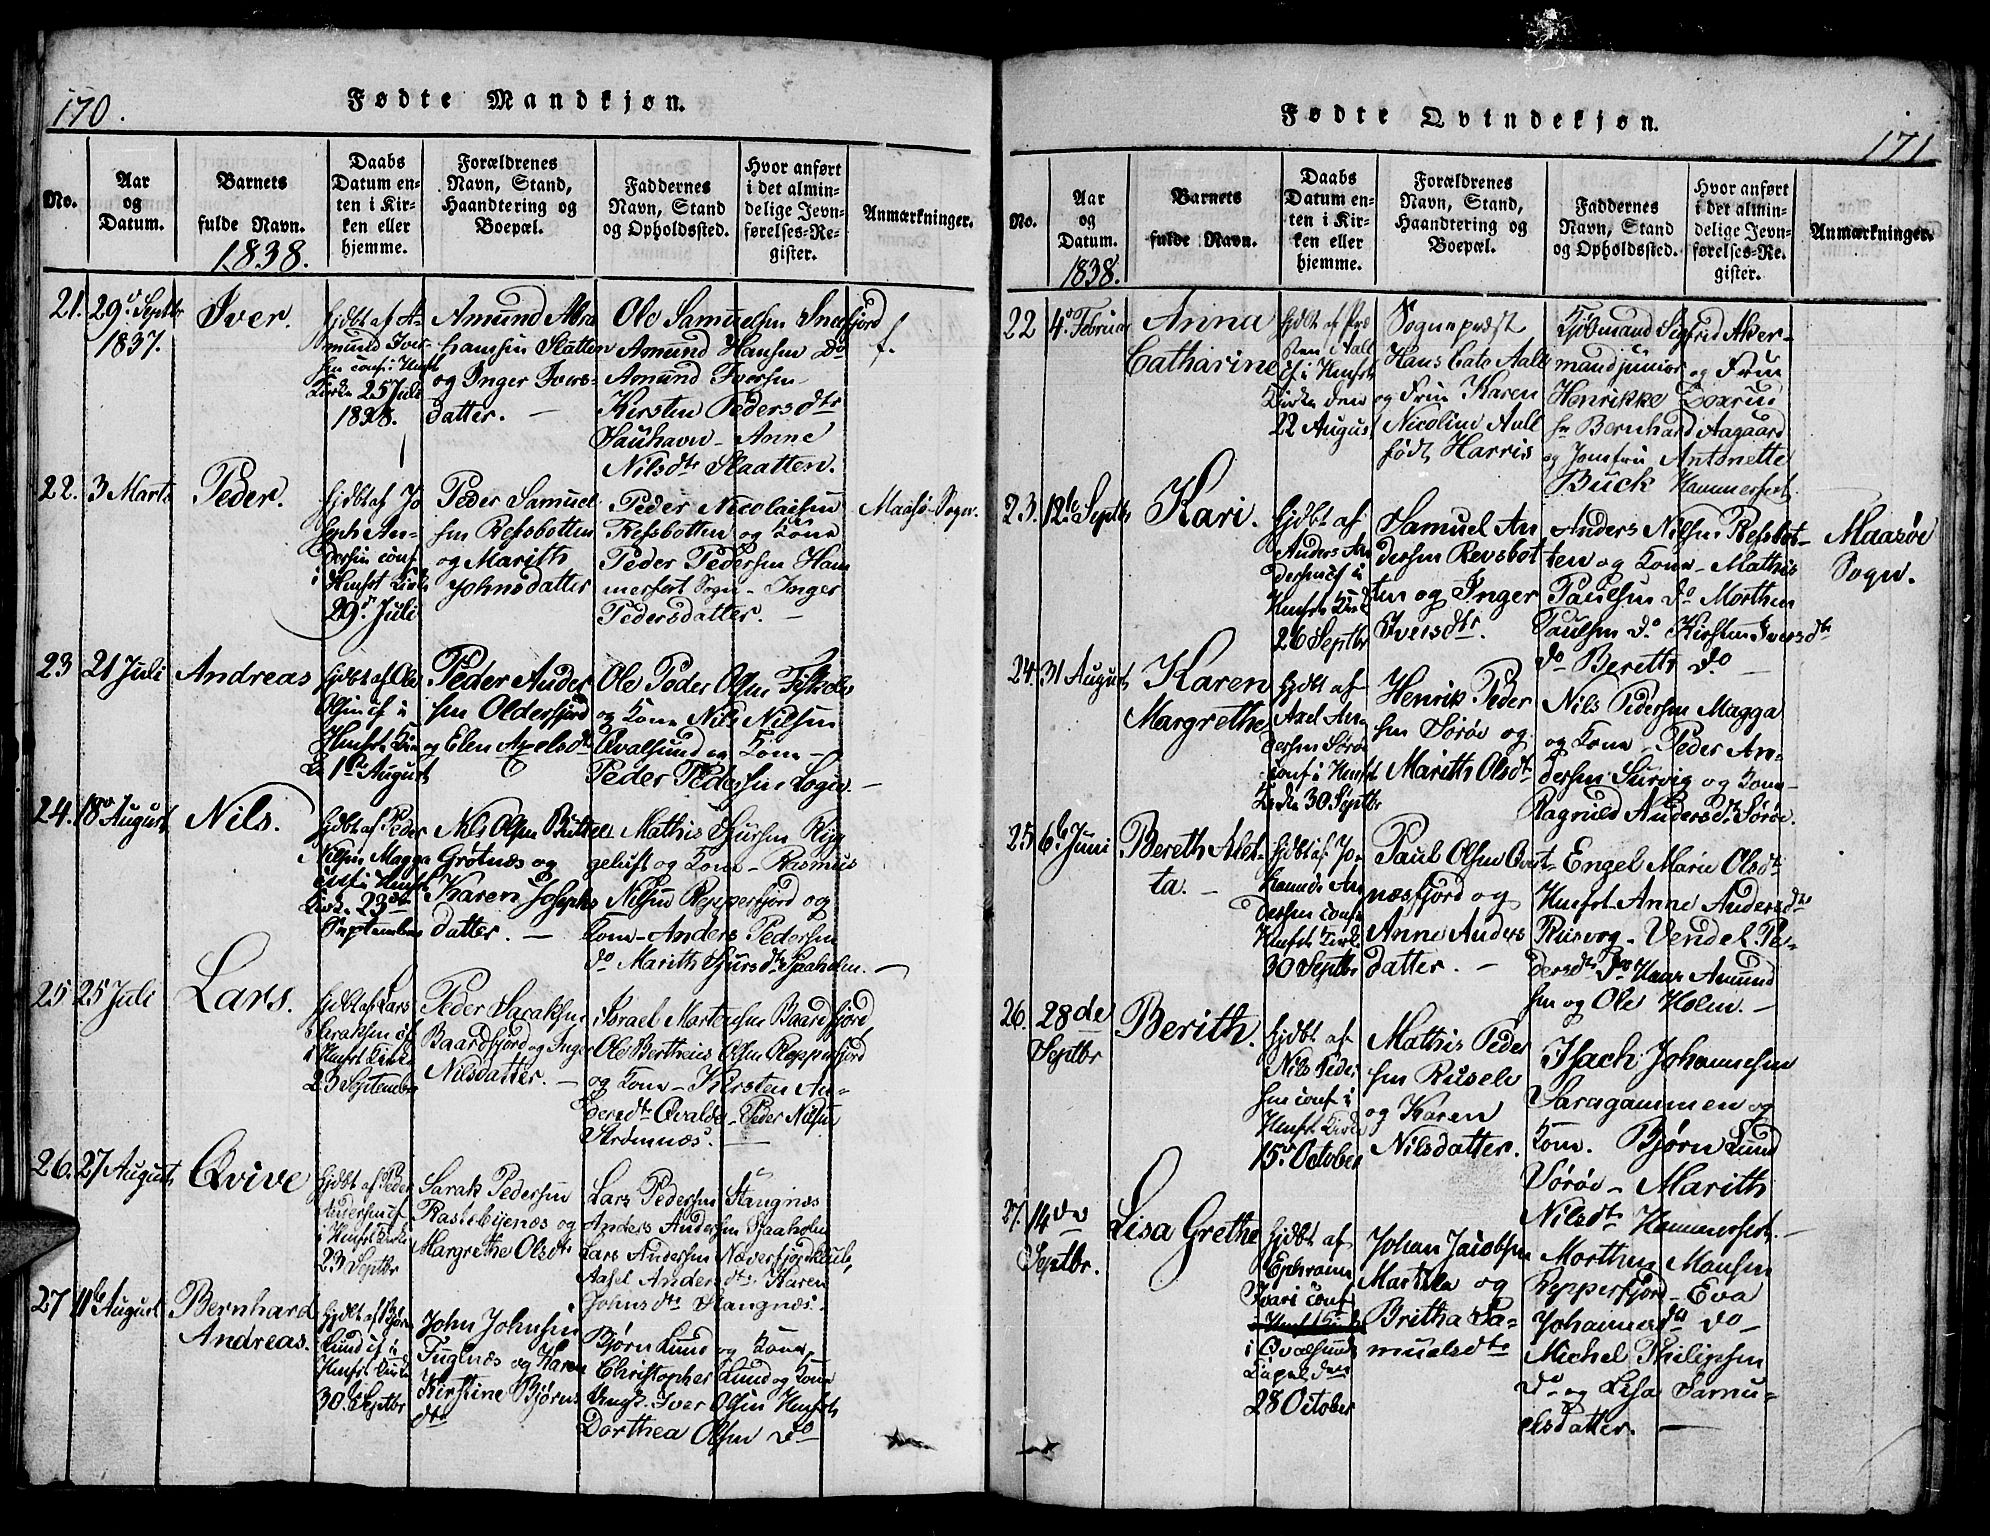 170.
Fødte Mandkjøn.
No.
Aar
og
Datum.
Barnets
fulde Navn.
1838.
Daabs
Datum en-
ten i Kir-
ken eller
hjemme.
Forældrenes
Navn, Stand,
Haandtering og
Boepæl.
Faddernes
Navn, Stand
og Opholdssted.
Hvor anført
i det almin-
delige Jevn-
førelses-Re-
gister.
Anmærkninger.
21.
29d Septbr
1837.
Iver.
hjdbt af A-
mund Iver-
sen conf: i Hmfst
Kirke 25 Juli
1838.
Amund Abra
hamsen Slatten
og Inger Ivers-
datter. —
Ole Samuelsen Snefjord
Amund Hansen Do
Amund Iversen
Kirsten Pedersdtr
Sauhavn - Anne
Nilsdtr Slaatten.
f.
22.
3 Marts
Peder.
hjdbt af Jo
seph An-
dersen conf
i Hmfst Kirke
29d Juli
Peder Samuel
sen Refsbotten
og Marith
Johnsdatter
Peder Nicolaisen
Refsbotten og Kone
Peder Pedersen Ham
merfest Sogn - Inger
Pedersdatter. —
Maasø Sogn.
23
21 Juli
Andreas
hjdbt af Ole
Olsen cf i
Hmfst Kir
ke 1ste August
Peder Ander
sen Olderfjord
og Elen Axelsdtr
Ole Peder Olsen
og Kone Nils Nilsen
Qvalsund og Kone -
Peder Pedersen
24.
18 August
Nils.
hjdbt af Peder
Nilsen Magga
conf i Hmfst
Kirke 23de
September
Nils Olsen
Grøtnæs og
Karen Josephs
datter. —
Mathis Sjursen
og Kone - Rasmus
Nilsen Repperfjord og
Kone - Anders Pedersen
do Marith Sjursdtr Saaholm. —
25
25 Juli
Lars.
hjdbt af Lars
Saraksen cf
i Hmfst Kirke
23 September
Peder Saraksen
Baardfjord og Inger
Nilsdatter. —
Israel Mortensen Baardfjord,
Ole Bertheus Olsen Repperfjord
og Kone - Kirsten An-
dersdtr Qvalde - Peder Nilsen
Strømnæs. —
26.
27 August
Qvive
hjdbt af Peder
Andersen cf
i Hmfst Kirke
23 Septbr
Sarak Pedersen
og
Margrethe Olsdtr
Lars Pedersen Stangnæs
Anders Andersen Saaholm
Lars Andersen
Aasel Andersdtr Karen
Johnsdtr Stangnæs.
27
11te August
Bernhard
Andreas.
hjdbt af Bjørn
Lund cf i
Hmfst Kirke
30te Septbr
John Johnsen
Fuglnæs og Karen
Kirstine Bjørns
dtr
Bjørn Lund og Kone
Christopher Lund og Kone
Iver Olsen Hmfst
Dorthea Olsen Do
Fødte Qvindekjøn.
171
No.
Aar
og
Datum.
1838.
Barnets
fulde Navn.
Daabs
Datum en-
ten i Kir-
ken eller
hjemme.
Forældrenes
Navn, Stand,
Haandtering og
Boepæl.
Faddernes
Navn, Stand
og Opholdssted.
Hvor anført
i det almin-
delige Jevn-
førelses-Re-
gister.
Anmærkninger.
22
4de Februar
Anna
Catharine
hjdbt af Præ
sten Aall
cf i Hmfst
Kirke den
22 August
Sognepræst
Hans Cato Aall
og Frue Karen
Nicoline Aall
født Harris
Kjøbmand Sigfrid Aker-
mand junior og Frue
Henrikke
Hr Bernhard Aagaard
og Jomfru Antonette
Buck Hammerfest.
23.
12te Septbr
Kari.
hjdbt af
Anders An
dersen cf i
Hmfst Kirke
26 Septbr
Samuel An
dersen Revsbot
ten og Inger
Iversdtr.
Anders Nilsen Refsbot-
ten og Kone - Mathis
Paulsen do Morthen
Paulsen do Kirsten Iversdtr
do Bereth do —
Maasøe
Sogn.
24.
31 August
Karen
Margrethe
hjdbt af
Axel An-
dersen Sørøe
conf i Hmfst
Kirke 30 Septbr
Henrik Peder
sen Sørøe og
Marith Olsdtr
Nils Pedersen Magga
og Kone - Peder An-
dersen Survig og Kone -
Ragnild Andersdtr Sørøe.
25
6te Juni
Bereth Alet-
ta. —
hjdbt af Jo-
hannes An
dersen conf i
Hmfst Kirke
30 Septbr
Paul Olsen Qvit-
næsfjord og
Anne Anders
datter. —
Engel Marie Olsdtr
Hmfst - Anne Andersdtr
Rusvog - Vendel Pe-
dersdtr do Hans Amund
sen og Ole Holm. —
26.
28de
Septbr
Berith.
hjdbt af
Nils Peder
sen conf i
Hmfst Kirke
15d October
Mathis Peder
sen Rusele
og Karen
Nilsdatter.
Isach Johannesen
Saragammen og
Kone. Bjørn Lund
Sørøe - Marith
Nilsdtr Hammerfest. —
27.
14de
Septbr.
Lisa Grethe
hjdbt af
Ephraim
Ivari conf
i Qvalsund
Capel den
28 October
Johan Jacobsen
Martila og
Britha Sa-
muelsdtr
Morthen Monsen
Repperfjord - Eva
Johannesdtr do
Michel Philipsen
do og Lisa Samu-
elsdatter. —